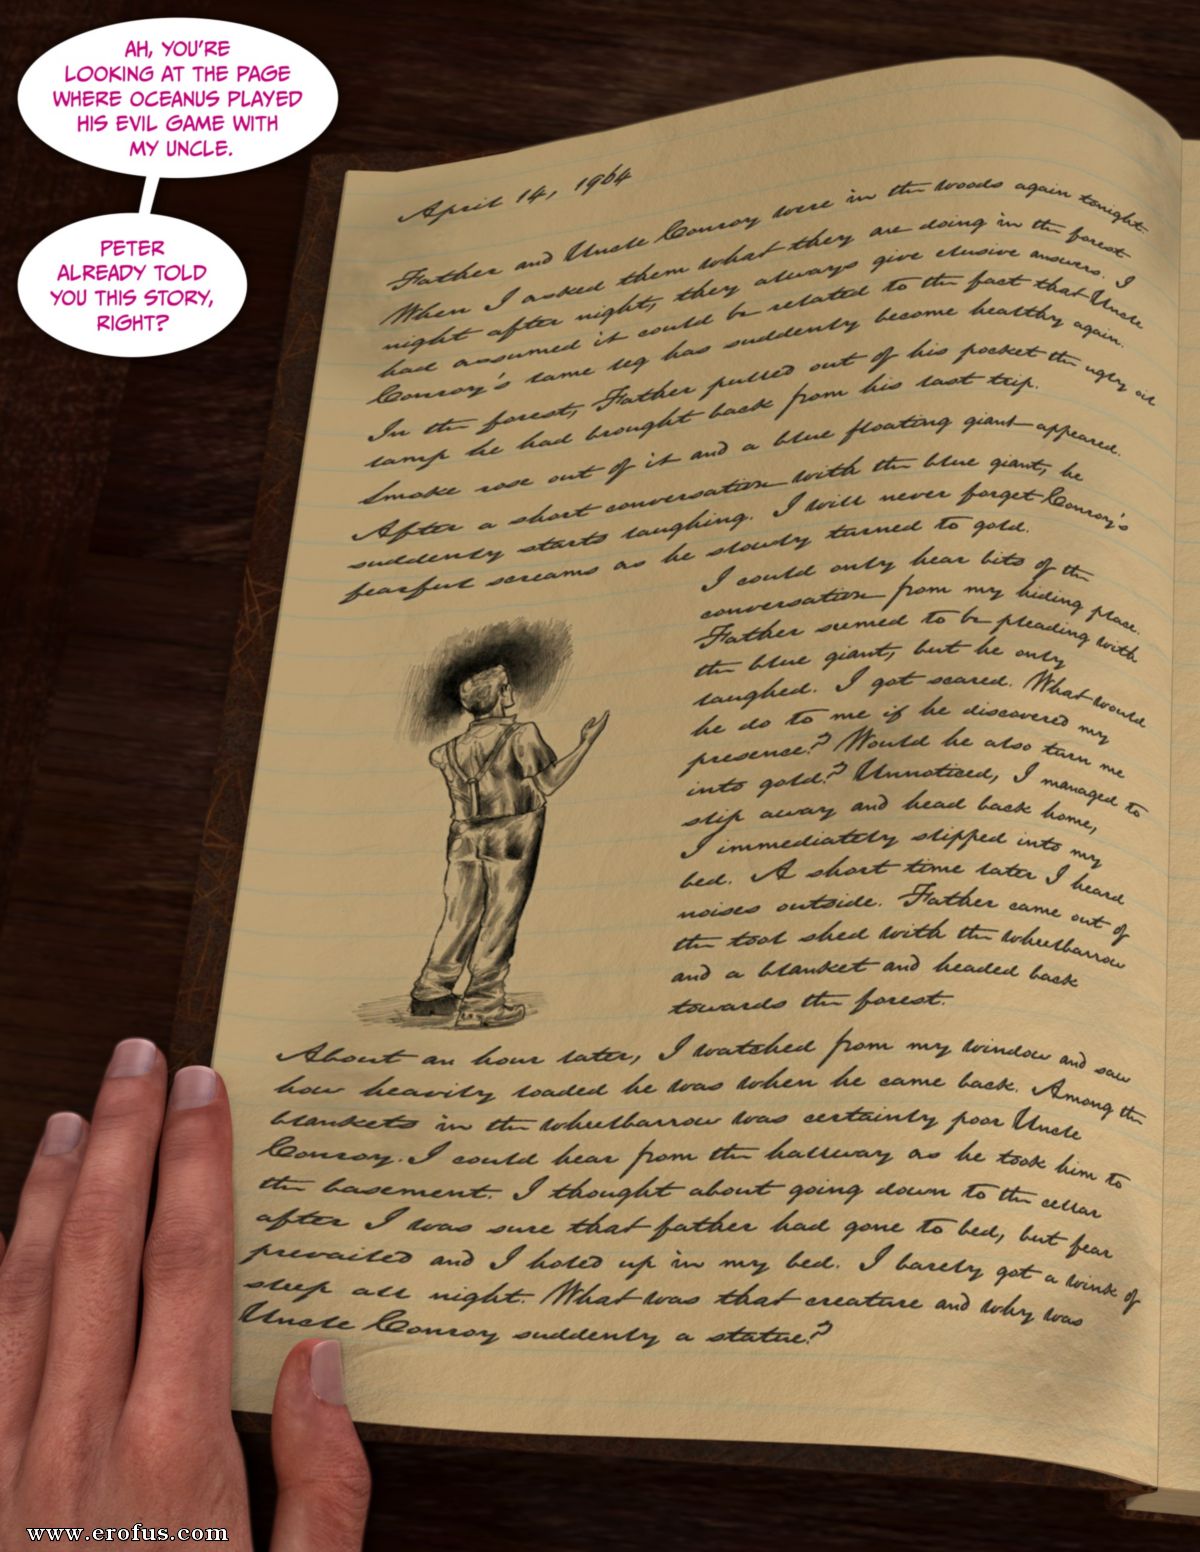 AH, YOU'RE
LOOKING AT THE PAGE
WHERE OCEANUS PLAYED
HIS EVIL GAME WITH
MY UNCLE.
PETER
ALREADY TOLD
YOU THIS STORY,
RIGHT?
April 14, 1964
Father and Uncle Conroy were in the woods again tonight
When I asked them what they are doing in the forest
night after night, they always give elusive answers. I
had assumed it could be related to the fact that Uncle
Conroy's lame leg has suddenly become healthy again.
In the forest, Father pulled out of his pocket the ugly oil
lamp he had brought back from his last trip.
Smoke rose out of it and a blue floating giant appeared.
After a short conversation with the blue giant, he
suddenly starts laughing. I will never forget Conroy's
fearful screams as he slowly turned to gold.
I could only hear bits of the
conversation from my hiding place.
Father seemed to be pleading with
the blue giant, but he only
laughed. I got scared. What would
he do to me if he discovered my
presence? Would he also turn me
into gold? Unnoticed, I managed to
slip away and head back home,
I immediately slipped into my
bed. A short time later I heard
noises outside. Father came out of
the tool shed with the wheelbarrow
and a blanket and headed back
towards the forest.
About an hour later, I watched from my window and saw
how heavily loaded he was when he came back. Among the
blankets in the wheelbarrow was certainly poor Uncle
Conroy. I could hear from the hallway as he took him to
the basement. I thought about going down to the cellar
after I was sure that father had gone to bed, but fear
prevailed and I holed up in my bed. I barely got a wink of
sleep all night. What was that creature and why was
Uncle Conroy suddenly a statue?
www.erofus.com